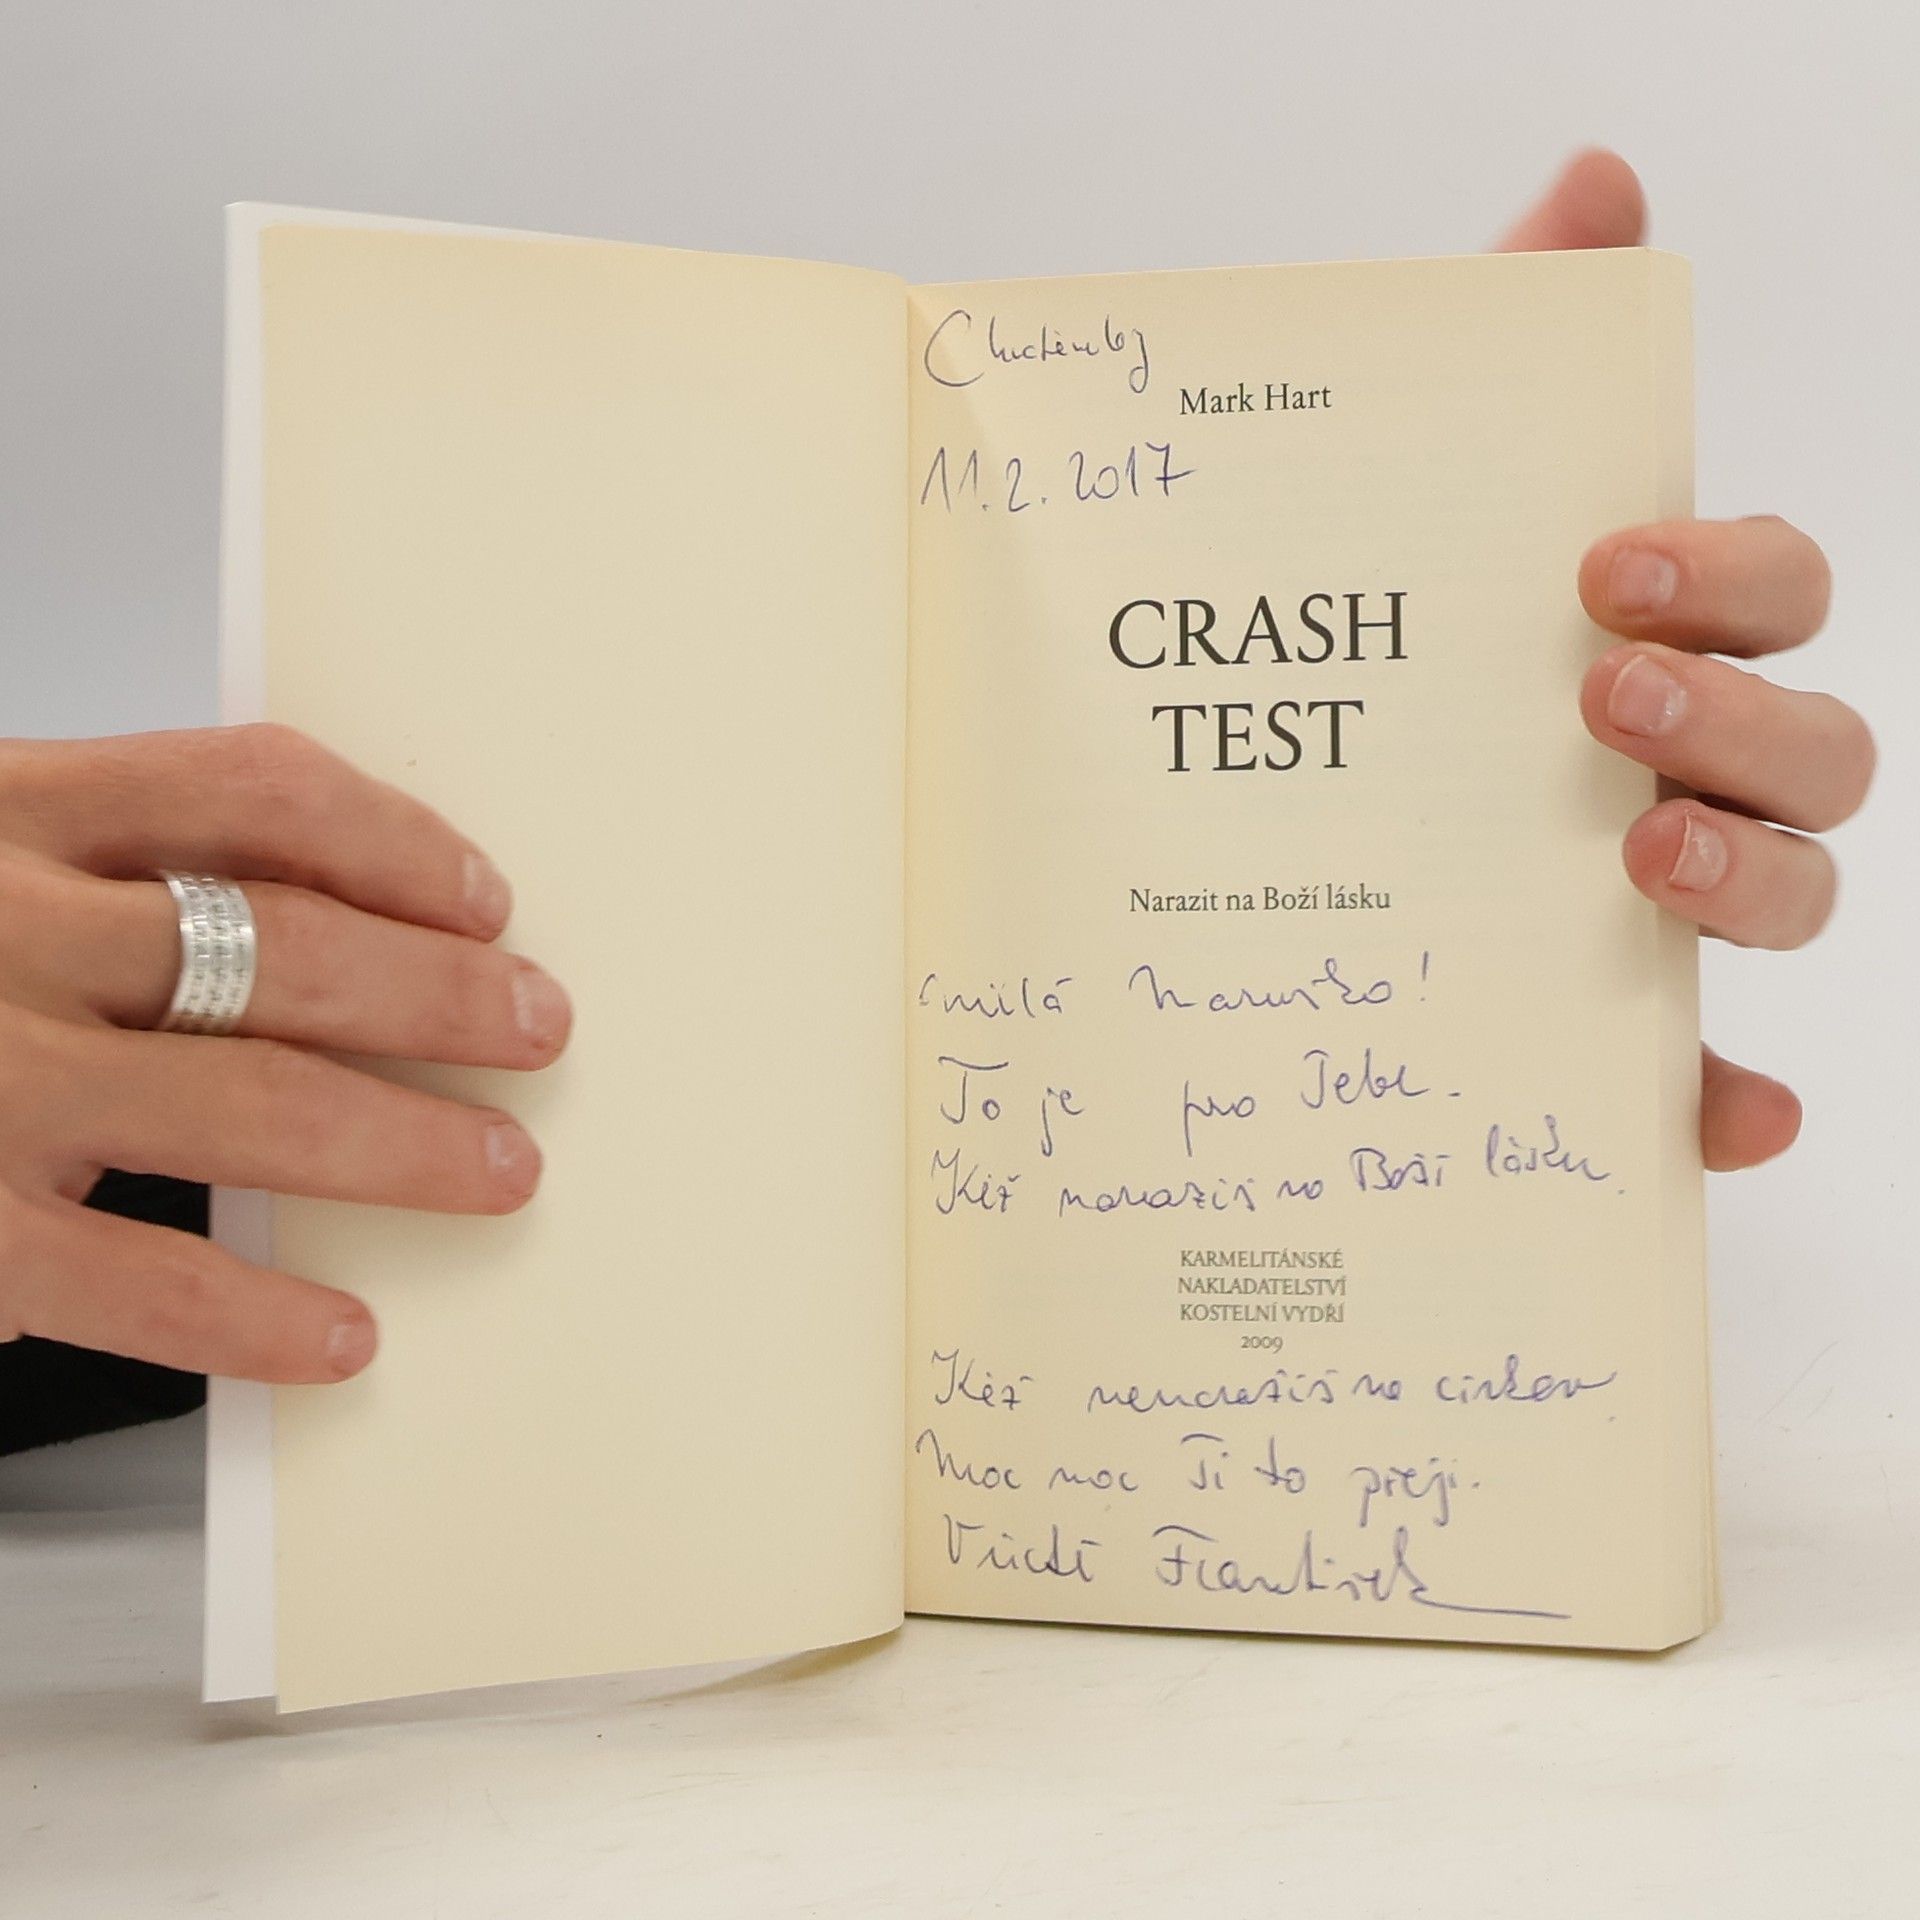 Mark Hart
11.2.2017
CRASH
TEST
Narazit na Boží lásku
milá Maruško!
To je pro Tebe.
Kéž narazíš na Boží lásku.
KARMELITÁNSKÉ
NAKLADATELSTVÍ
KOSTELNÍ VYDŘÍ
2009
Kéž nenarazíš na církev.
Moc moc Ti to přeji.
František